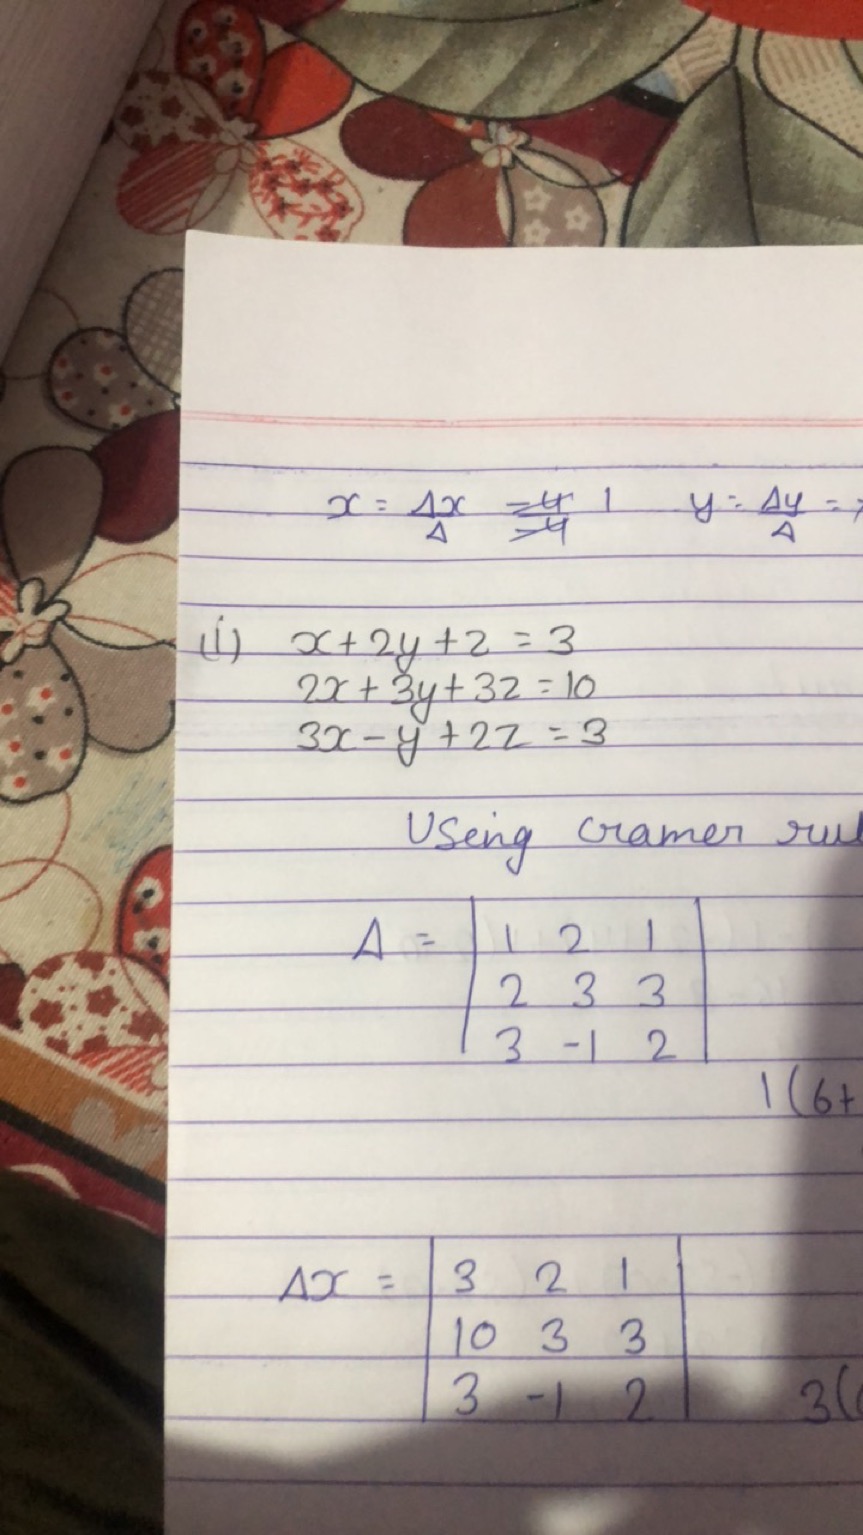 x = Δx/Δ = -4/-4 1 y = Δy/Δ =
(ii) x+2y+z = 3
2x+3y+3z = 10
3x-y+2z = 3
Useing cramer rul
Δ = | 1 2 1 |
| 2 3 3 |
| 3 -1 2 |
1(6+
Δx = | 3 2 1 |
| 10 3 3 |
| 3 -1 2 | 3(